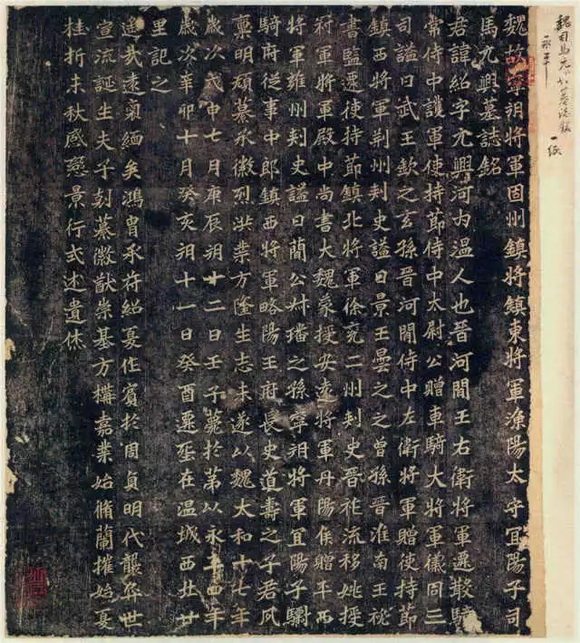 魏故寧朔將軍固州鎮將鎮東將軍漁陽太守宜陽子司
馬元興墓誌銘
君諱紹字元興河內溫人也晉河間王右衛將軍遷散騎
常侍中護軍使持節侍中太尉公贈車騎大將軍儀同三
司謚曰武王欽之玄孫晉河間侍中左衛將軍贈使持節
鎮西將軍荊州刺史謚曰景王曇之之曾孫晉淮南王祕
書監遷使持節鎮北將軍徐兗二州刺史晉祚流移姚授
冠軍將軍殿中尚書大魏蒙授安遠將軍丹陽侯贈平西
將軍雍州刺史謚曰簡公叔璠之孫寧朔將軍宜陽子驃
騎府從事中郎鎮西將軍略陽王府長史道壽之子君夙
稟明頴纂承徽烈洪業方隆生志未遂以魏太和十七年
歲次戊申七月庚辰朔十二日壬子薨於第以永平四年
歲次辛卯十月癸亥朔十一日癸酉遷葬在溫城西北廿
里記之
遙哉遠裔緬矣鴻胄承苻紹夏作賓於周貞明代襲弈世
宣流誕生夫子剋纂徽猷崇基方構嘉業始脩蘭摧始夏
桂折未秋感戀景行式述遺休